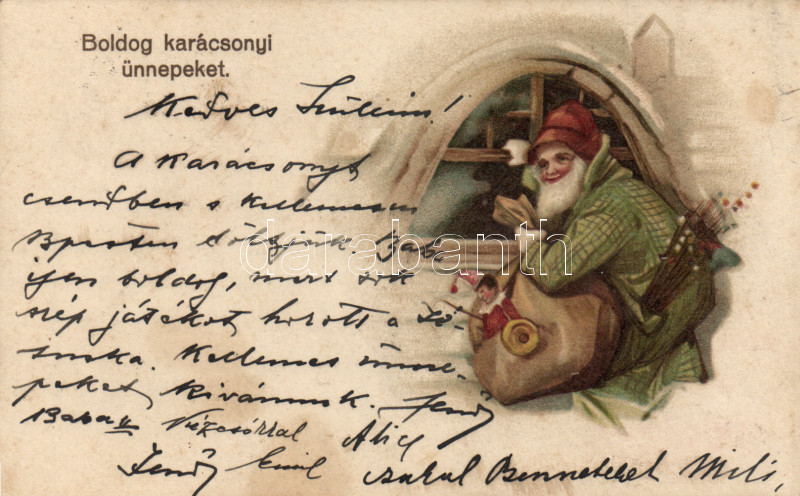 Boldog karácsonyi
ünnepeket.
Kedves Szüleim!
A Karácsonyt
csendben s kellemesen
Bpesten töltjük. Baba
ilyen boldog, mert sok
szép játékot hozott a Jé-
zuska. Kellemes ünne-
peket kivánunk. Jenő
Baba Alice
Jenő Emil csókol Benneteket Mili,
darabanth